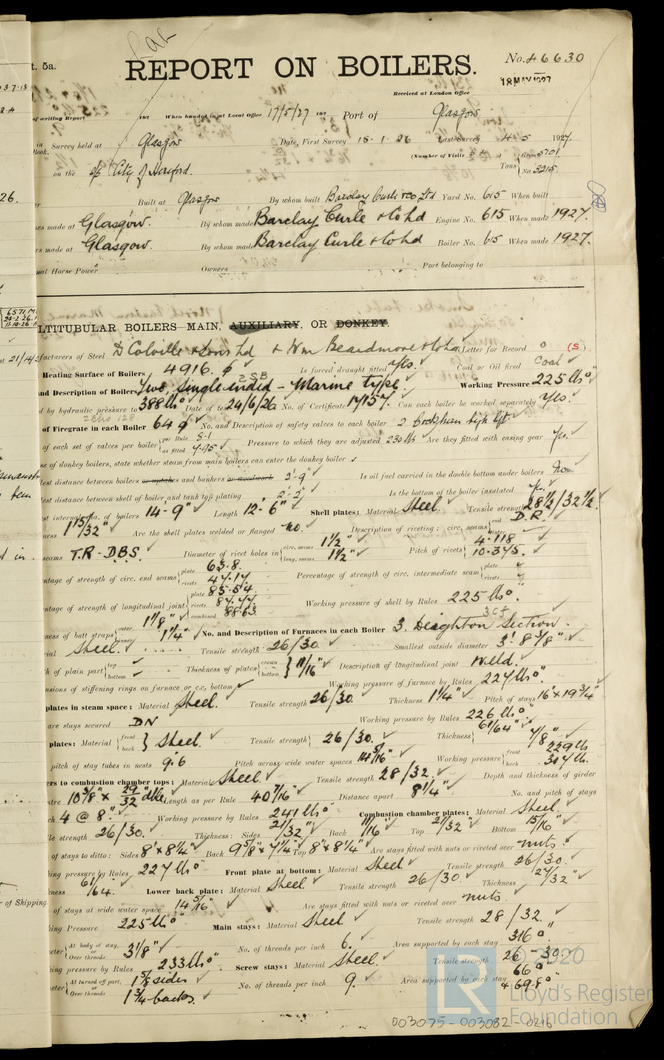 t. 5a.
REPORT ON BOILERS.
No. 46630
18 MAY 1927
Received at London Office
of writing Report 192 When handed in at Local Office 17/5/27 192 Port of Glasgow
Survey held at Glasgow Date, First Survey 18-1-26 Last Survey 4-5 1927
(Number of Visits
on the City of Hereford. Tons Gross 5701 Net 3215
Built at Glasgow By whom built Barclay Curle & Co Ltd Yard No. 615 When built
es made at Glasgow. By whom made Barclay Curle & Co Ltd Engine No. 615 When made 1927.
rs made at Glasgow. By whom made Barclay Curle & Co Ltd Boiler No. 615 When made 1927.
nal Horse Power Owners Port belonging to
LTITUBULAR BOILERS—MAIN, AUXILIARY, OR DONKEY.
facturers of Steel D Colville & Sons Ltd & Wm Beardmore & Co Ltd Letter for Record (S)
Heating Surface of Boilers 4916. Is forced draught fitted Yes. Coal or Oil fired Coal
and Description of Boilers Two Single ended - Marine type. 2 SB Working Pressure 225 lbs
d by hydraulic pressure to 388 lbs Date of test 24/6/26 No. of Certificate 17157. Can each boiler be worked separately Yes.
of Firegrate in each Boiler 64 No. and Description of safety valves to each boiler 2 Cockburn high lift
of each set of valves per boiler per Rule as fitted Pressure to which they are adjusted 230 lbs Are they fitted with easing gear Yes.
se of donkey boilers, state whether steam from main boilers can enter the donkey boiler
est distance between boilers or uptakes and bunkers or woodwork 2'-9" Is oil fuel carried in the double bottom under boilers no
est distance between shell of boiler and tank top plating 2'-2" Is the bottom of the boiler insulated yes
st internal dia. of boilers 14-9" Length 12'-6" Shell plates: Material Steel Tensile strength 28½/32½
ness 1 15/32" Are the shell plates welded or flanged no. Description of riveting: circ. seams end D.R.
seams T.R-D.B.S. Diameter of rivet holes in circ. seams 1½" long. seams 1½" Pitch of rivets 4.118 10.375.
entage of strength of circ. end seams plate 63.8. rivets 47.14 Percentage of strength of circ. intermediate seam plate rivets
ntage of strength of longitudinal joint plate 85.54 rivets combined 88.63 Working pressure of shell by Rules 225 lbs.
ness of butt straps outer 1⅛" inner 1¼" No. and Description of Furnaces in each Boiler 3. Deighton Section. 3cf
ial Steel. Tensile strength 26/30 Smallest outside diameter 3'-8⅜"
h of plain part top bottom Thickness of plates crown bottom 11/16" Description of longitudinal joint Weld.
nsions of stiffening rings on furnace or c.c. bottom Working pressure of furnace by Rules 227 lbs.
plates in steam space: Material Steel. Tensile strength 26/30. Thickness 1¼" Pitch of stays 16" x 19¾"
are stays secured DN Working pressure by Rules 226 lbs
plates: Material front back Steel. Tensile strength 26/30. Thickness 61/64" 7/8"
pitch of stay tubes in nests 9.6 Pitch across wide water spaces 14 5/16 Working pressure front 229 lbs back 307 lb.
ers to combustion chamber tops: Material Steel Tensile strength 28/32. Depth and thickness of girder
ntre 10⅜" x 29/32" dble Length as per Rule 40 7/16" Distance apart 8¼" No. and pitch of stays
ch 4 @ 8" Working pressure by Rules 241 lbs Combustion chamber plates: Material Steel
le strength 26/30. Thickness: Sides 21/32" Back 11/16" Top 21/32" Bottom 15/16"
of stays to ditto: Sides 8" x 8¼" Back 9⅝" x 7¼" Top 8" x 8¼" Are stays fitted with nuts or riveted over nuts.
ing pressure by Rules 227 lbs Front plate at bottom: Material Steel Tensile strength 26/30.
ness 61/64. Lower back plate: Material Steel Tensile strength 26/30 Thickness 27/32"
of stays at wide water space 14 5/16" Are stays fitted with nuts or riveted over nuts
ing Pressure 225 lbs Main stays: Material Steel Tensile strength 28/32.
eter At body of stay, or Over threads 3⅛" No. of threads per inch 6. Area supported by each stay 316
ing pressure by Rules 233 lbs Screw stays: Material Steel Tensile strength 26-30.
eter At turned off part, or Over threads 1⅝ sides 1¾ backs. No. of threads per inch 9. Area supported by each stay 66 & 69.8
of Shipping
© 2020
Lloyd's Register
Foundation
003075-003082-0216